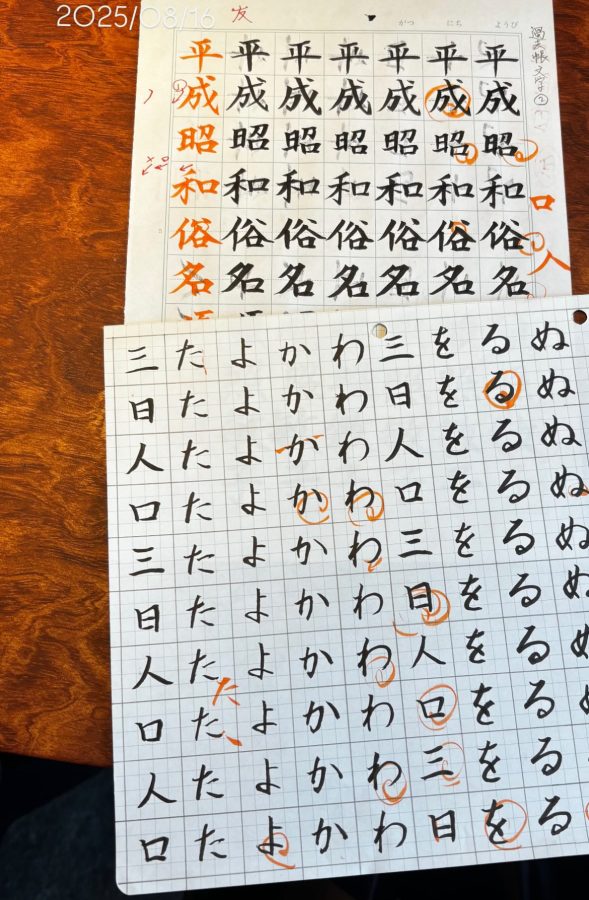 2025/08/16
がつ にち ようび
過去帳文字②
平成昭和俗名
平成昭和俗名
平成昭和俗名
平成昭和俗名
平成昭和俗名
平成昭和俗名
平成昭和俗名
口
人
ぬぬぬぬぬぬぬ
るるるるるるるるるる
をををををををををを
三日人口三日人口三日
わわわわわわわわわわ
かかかかかかかかかか
よよよよよよよよよよ
たたたたたたたたたた
た
三日人口三日人口人口